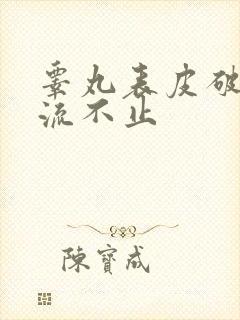 睾丸表皮破
流不止
陳寶成